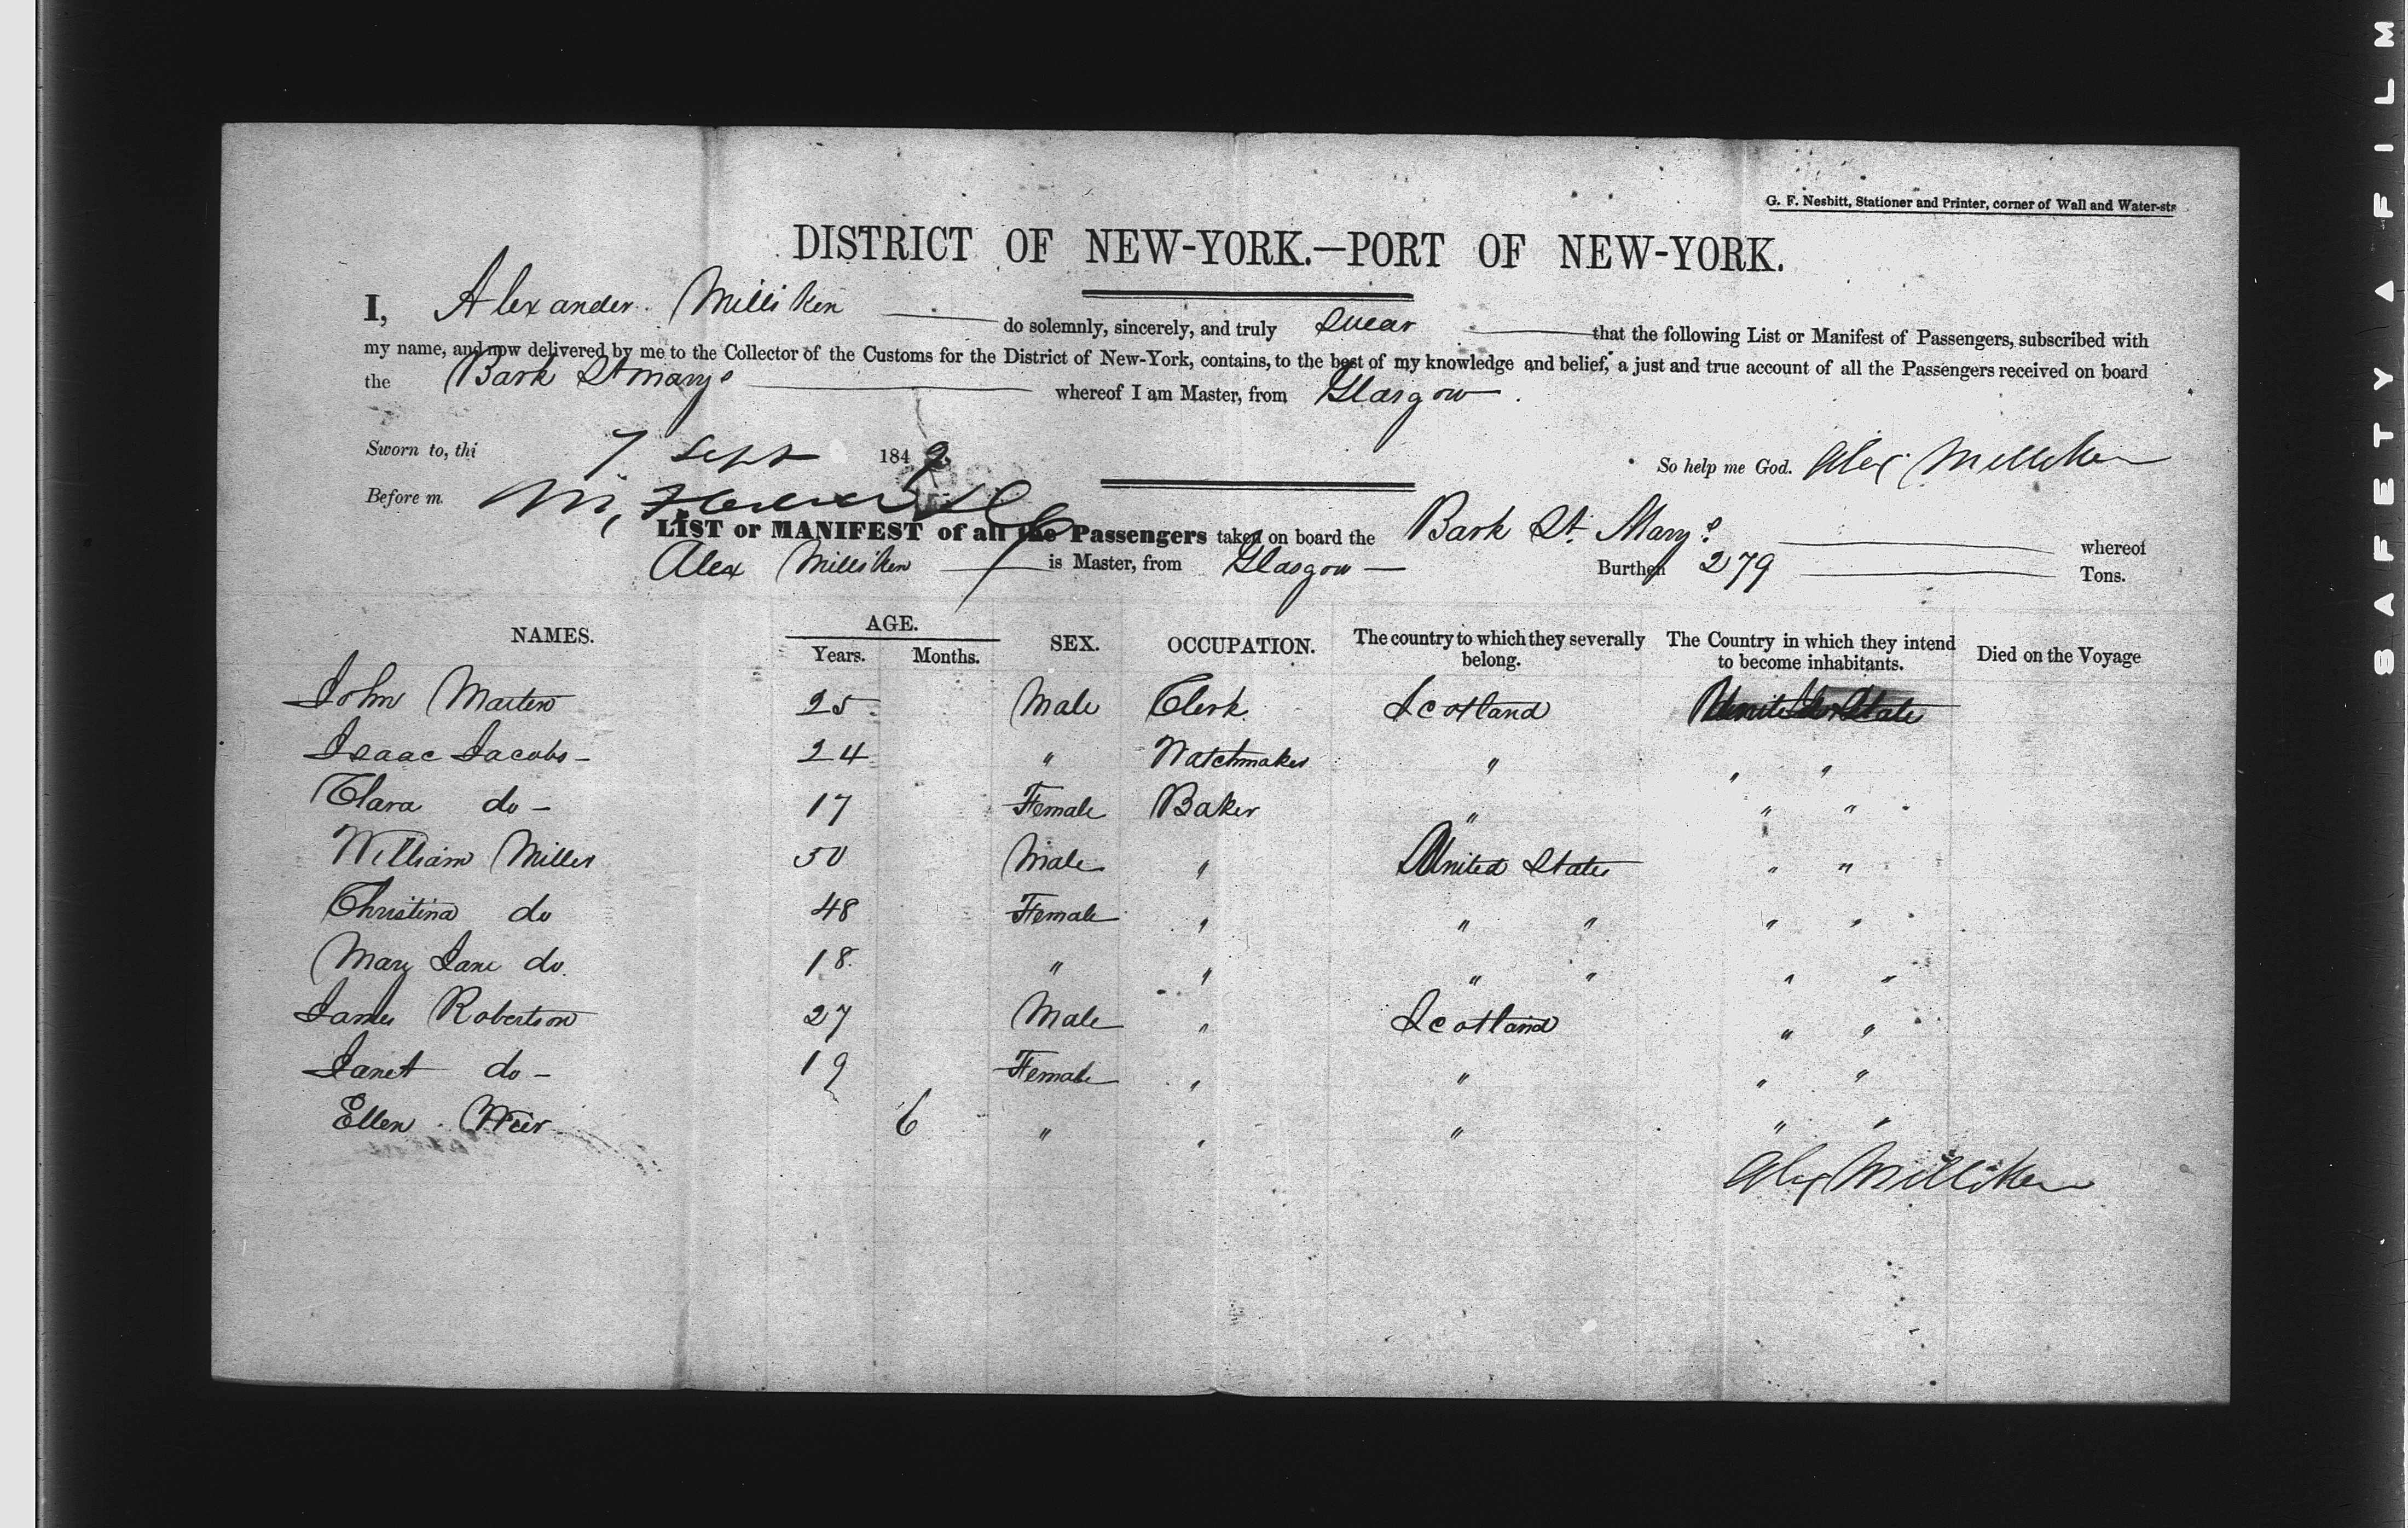 G. F. Nesbitt, Stationer and Printer, corner of Wall and Water-sts
DISTRICT OF NEW-YORK.—PORT OF NEW-YORK.
I, Alexander Milliken do solemnly, sincerely, and truly swear that the following List or Manifest of Passengers, subscribed with
my name, and now delivered by me to the Collector of the Customs for the District of New-York, contains, to the best of my knowledge and belief, a just and true account of all the Passengers received on board
the Bark St Marys whereof I am Master, from Glasgow.
Sworn to, thi 7 Sept 1849 So help me God. Alex Milliken
Before m
LIST or MANIFEST of all the Passengers taken on board the Bark St. Marys whereof
Alex Milliken is Master, from Glasgow — Burthen 279 Tons.
NAMES. AGE. Years. Months. SEX. OCCUPATION. The country to which they severally belong. The Country in which they intend to become inhabitants. Died on the Voyage
John Martin 25 Male Clerk. Scotland United State
Isaac Jacobs - 24 " Watchmaker " " "
Clara do - 17 Female Baker " " "
William Miller 50 Male " United States " "
Christina do 48 Female " " " " "
Mary Jane do. 18 " " " " " "
James Robertson 27 Male " Scotland " "
Janet do - 19 Female " " " "
Ellen Weir 6 " " " " "
Alex Milliken
SAFETY A FILM